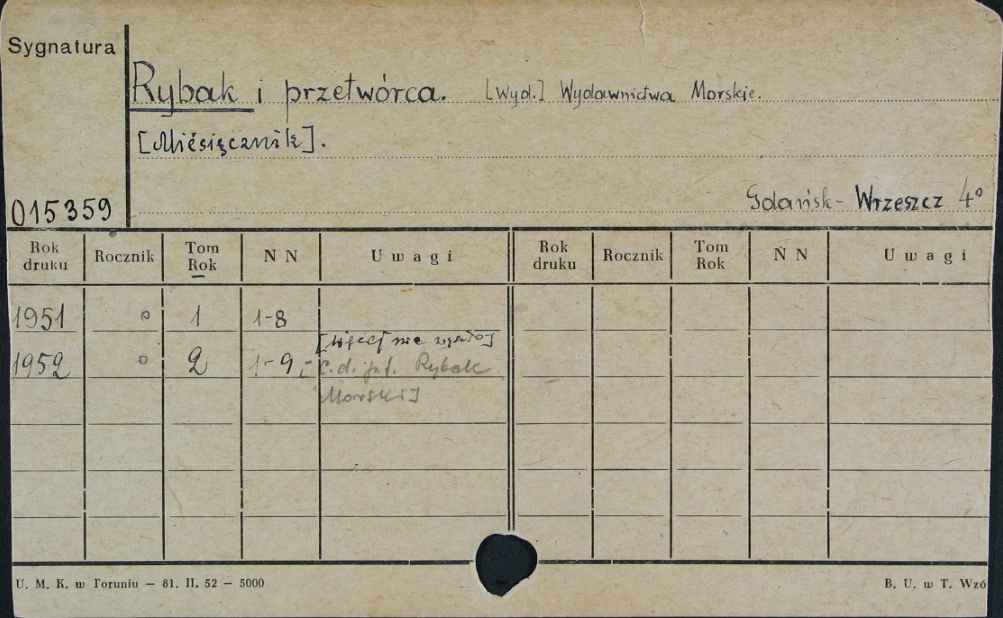 Sygnatura
Rybak i przetwórca. [Wyd.] Wydawnictwa Morskie.
[Miesięcznik].
015359
Gdańsk-Wrzeszcz 4°
Rok druku Rocznik Tom Rok N N Uwagi Rok druku Rocznik Tom Rok N N Uwagi
1951 o 1 1-8
[Więcej nie wyszło]
1952 o 2 1-9 c.d. Rybak
Morski]
U. M. K. w Toruniu — 81. II. 52 — 5000
B. U. w T. Wzó